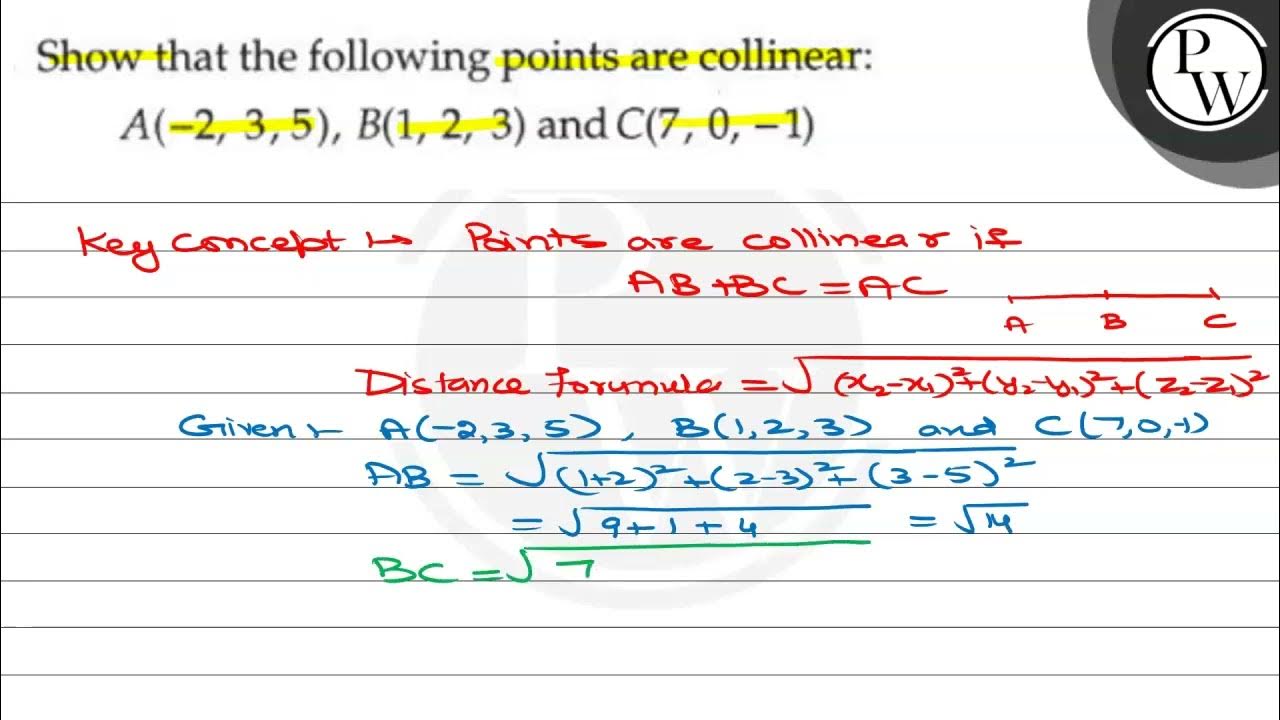 Show that the following points are collinear:
A(−2, 3, 5), B(1, 2, 3) and C(7, 0, −1)
PW
Key Concept :→ Points are collinear if
AB+BC = AC
A B C
Distance formula = √(x₂-x₁)²+(y₂-y₁)²+(z₂-z₁)²
Given :- A(-2,3,5), B(1,2,3) and C(7,0,-1)
AB = √(1+2)²+(2-3)²+(3-5)²
= √9+1+4 = √14
BC = √7